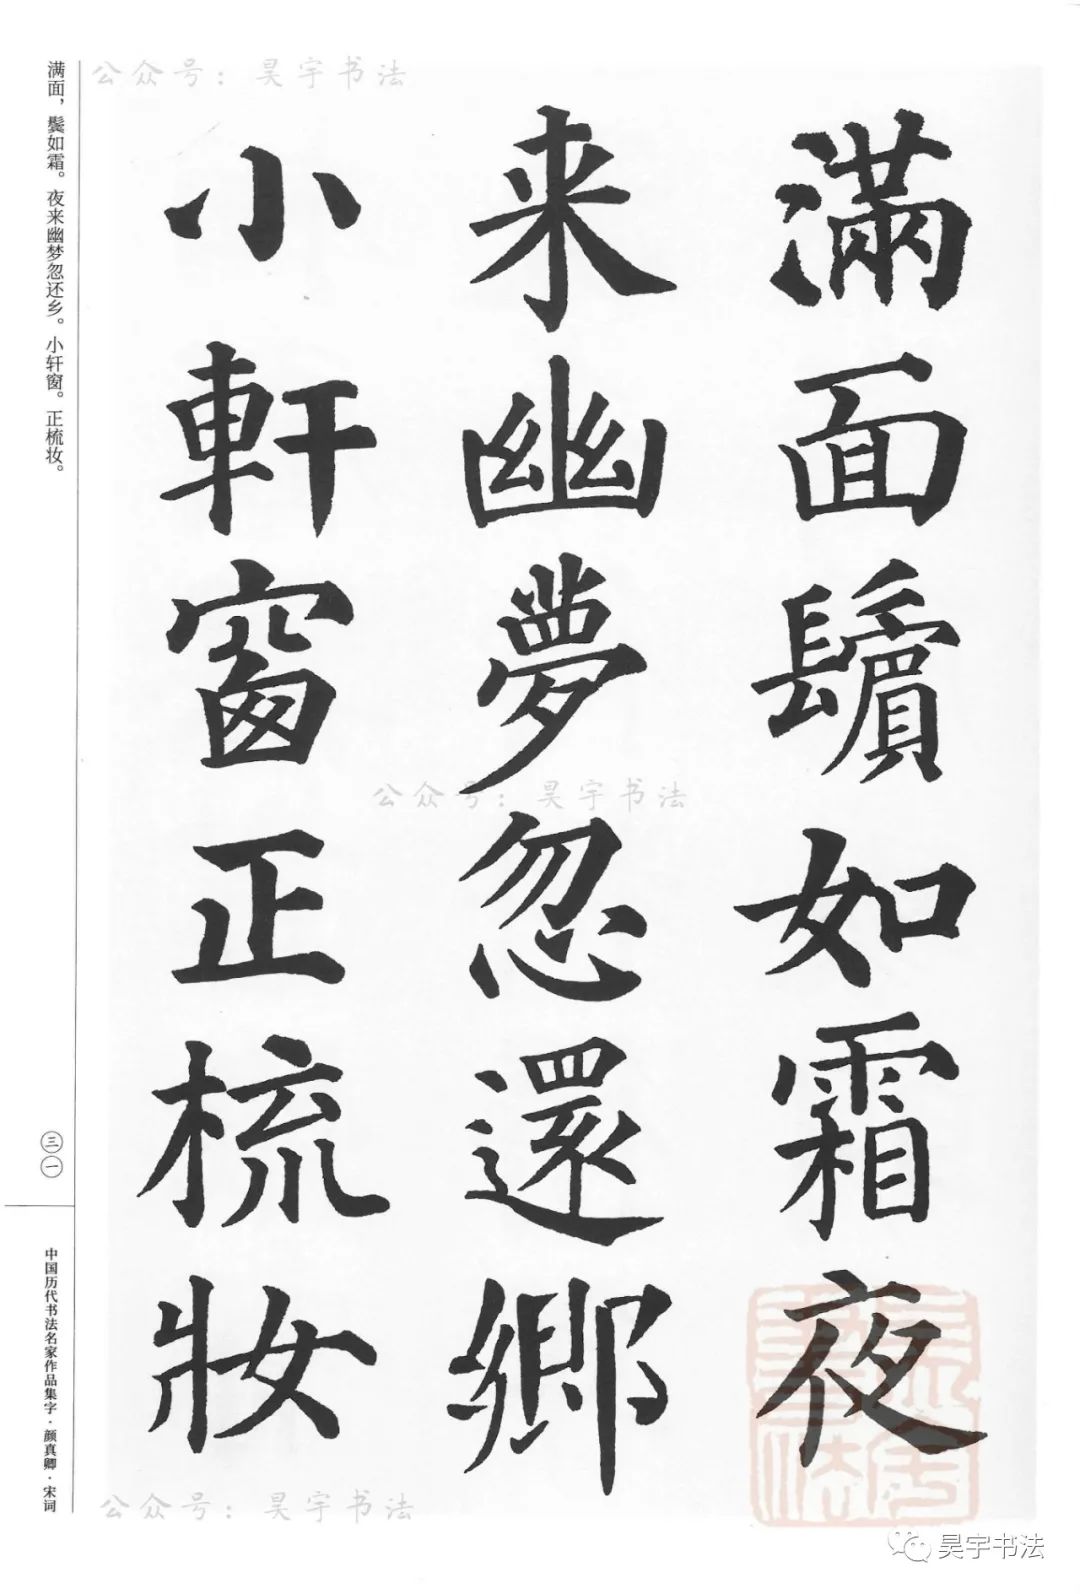 滿面鬢如霜夜
来幽夢忽還鄉
小軒窗正梳妝
满面，鬓如霜。夜来幽梦忽还乡。小轩窗。正梳妆。
三一
中国历代书法名家作品集字·颜真卿·宋词
公众号：昊宇书法
公众号：昊宇书法
公众号：昊宇书法
昊宇书法